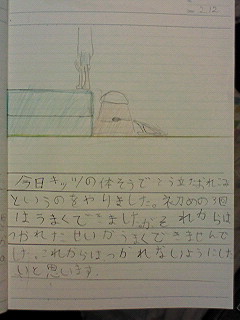 2.12
今日キッツの体そうでとう立たおれこ
というのをやりました。初めの3回
はうまくできました。が それからは
つかれたせいかうまくできませんで
した。これからはつかれないようにした
いと思います。